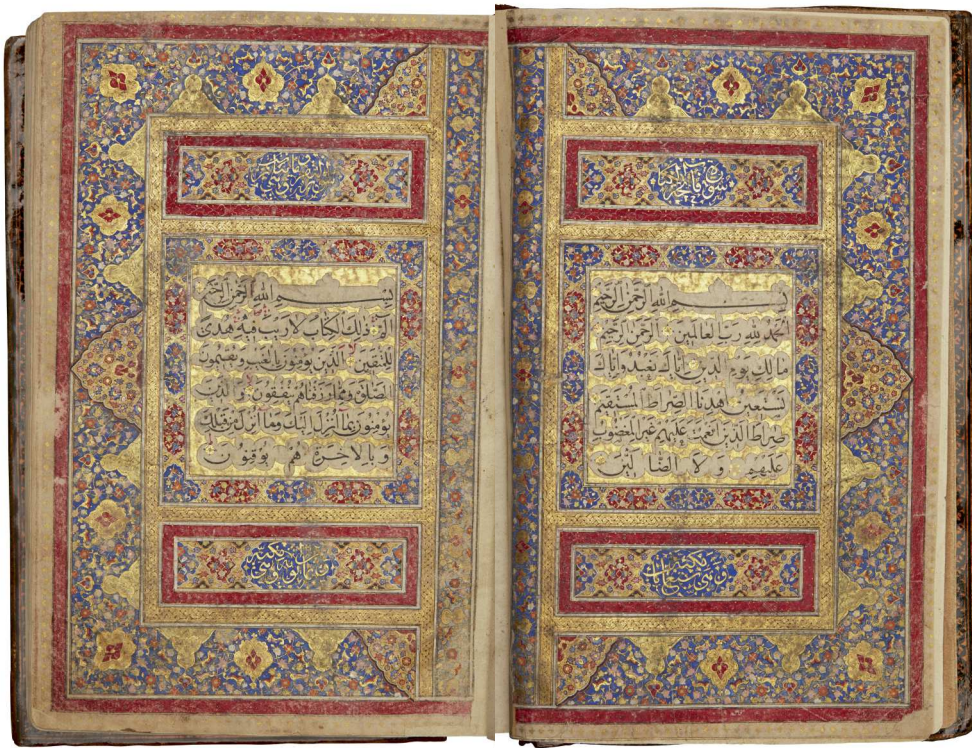 سورة فاتحة الكتاب
بسم الله الرحمن الرحيم
الحمد لله رب العالمين الرحمن الرحيم
مالك يوم الدين اياك نعبد واياك
نستعين اهدنا الصراط المستقيم
صراط الذين انعمت عليهم غير المغضوب
عليهم ولا الضالين
وهي سبع آيات مكية
بسم الله الرحمن الرحيم
الم ذلك الكتاب لا ريب فيه هدى
للمتقين الذين يؤمنون بالغيب ويقيمون
الصلوة ومما رزقناهم ينفقون والذين
يؤمنون بما انزل اليك وما انزل من قبلك
وبالاخرة هم يوقنون